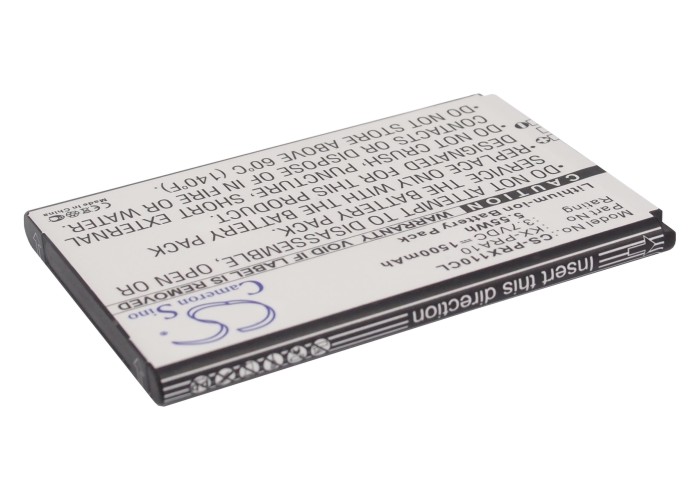 Model No.: CS-PRX110CL
Part No.: KX-PRA10
Rating: 3.7VDC 1500mAh
5.55Wh
Lithium-ion Battery Pack
CAUTION WARRANTY VOID IF LABEL IS REMOVED
DO NOT DISASSEMBLE, OPEN OR
REPLACE ONLY WITH BATTERY PACK
DESIGNATED FOR
DO NOT CRUSH, PUNCTURE, SHORT EXTERNAL
CONTACTS OR DISPOSE OF IN FIRE OR WATER.
DO NOT STORE ABOVE 60°C (140°F).
Made in China
CE
CS
Cameron Sino
Insert this direction